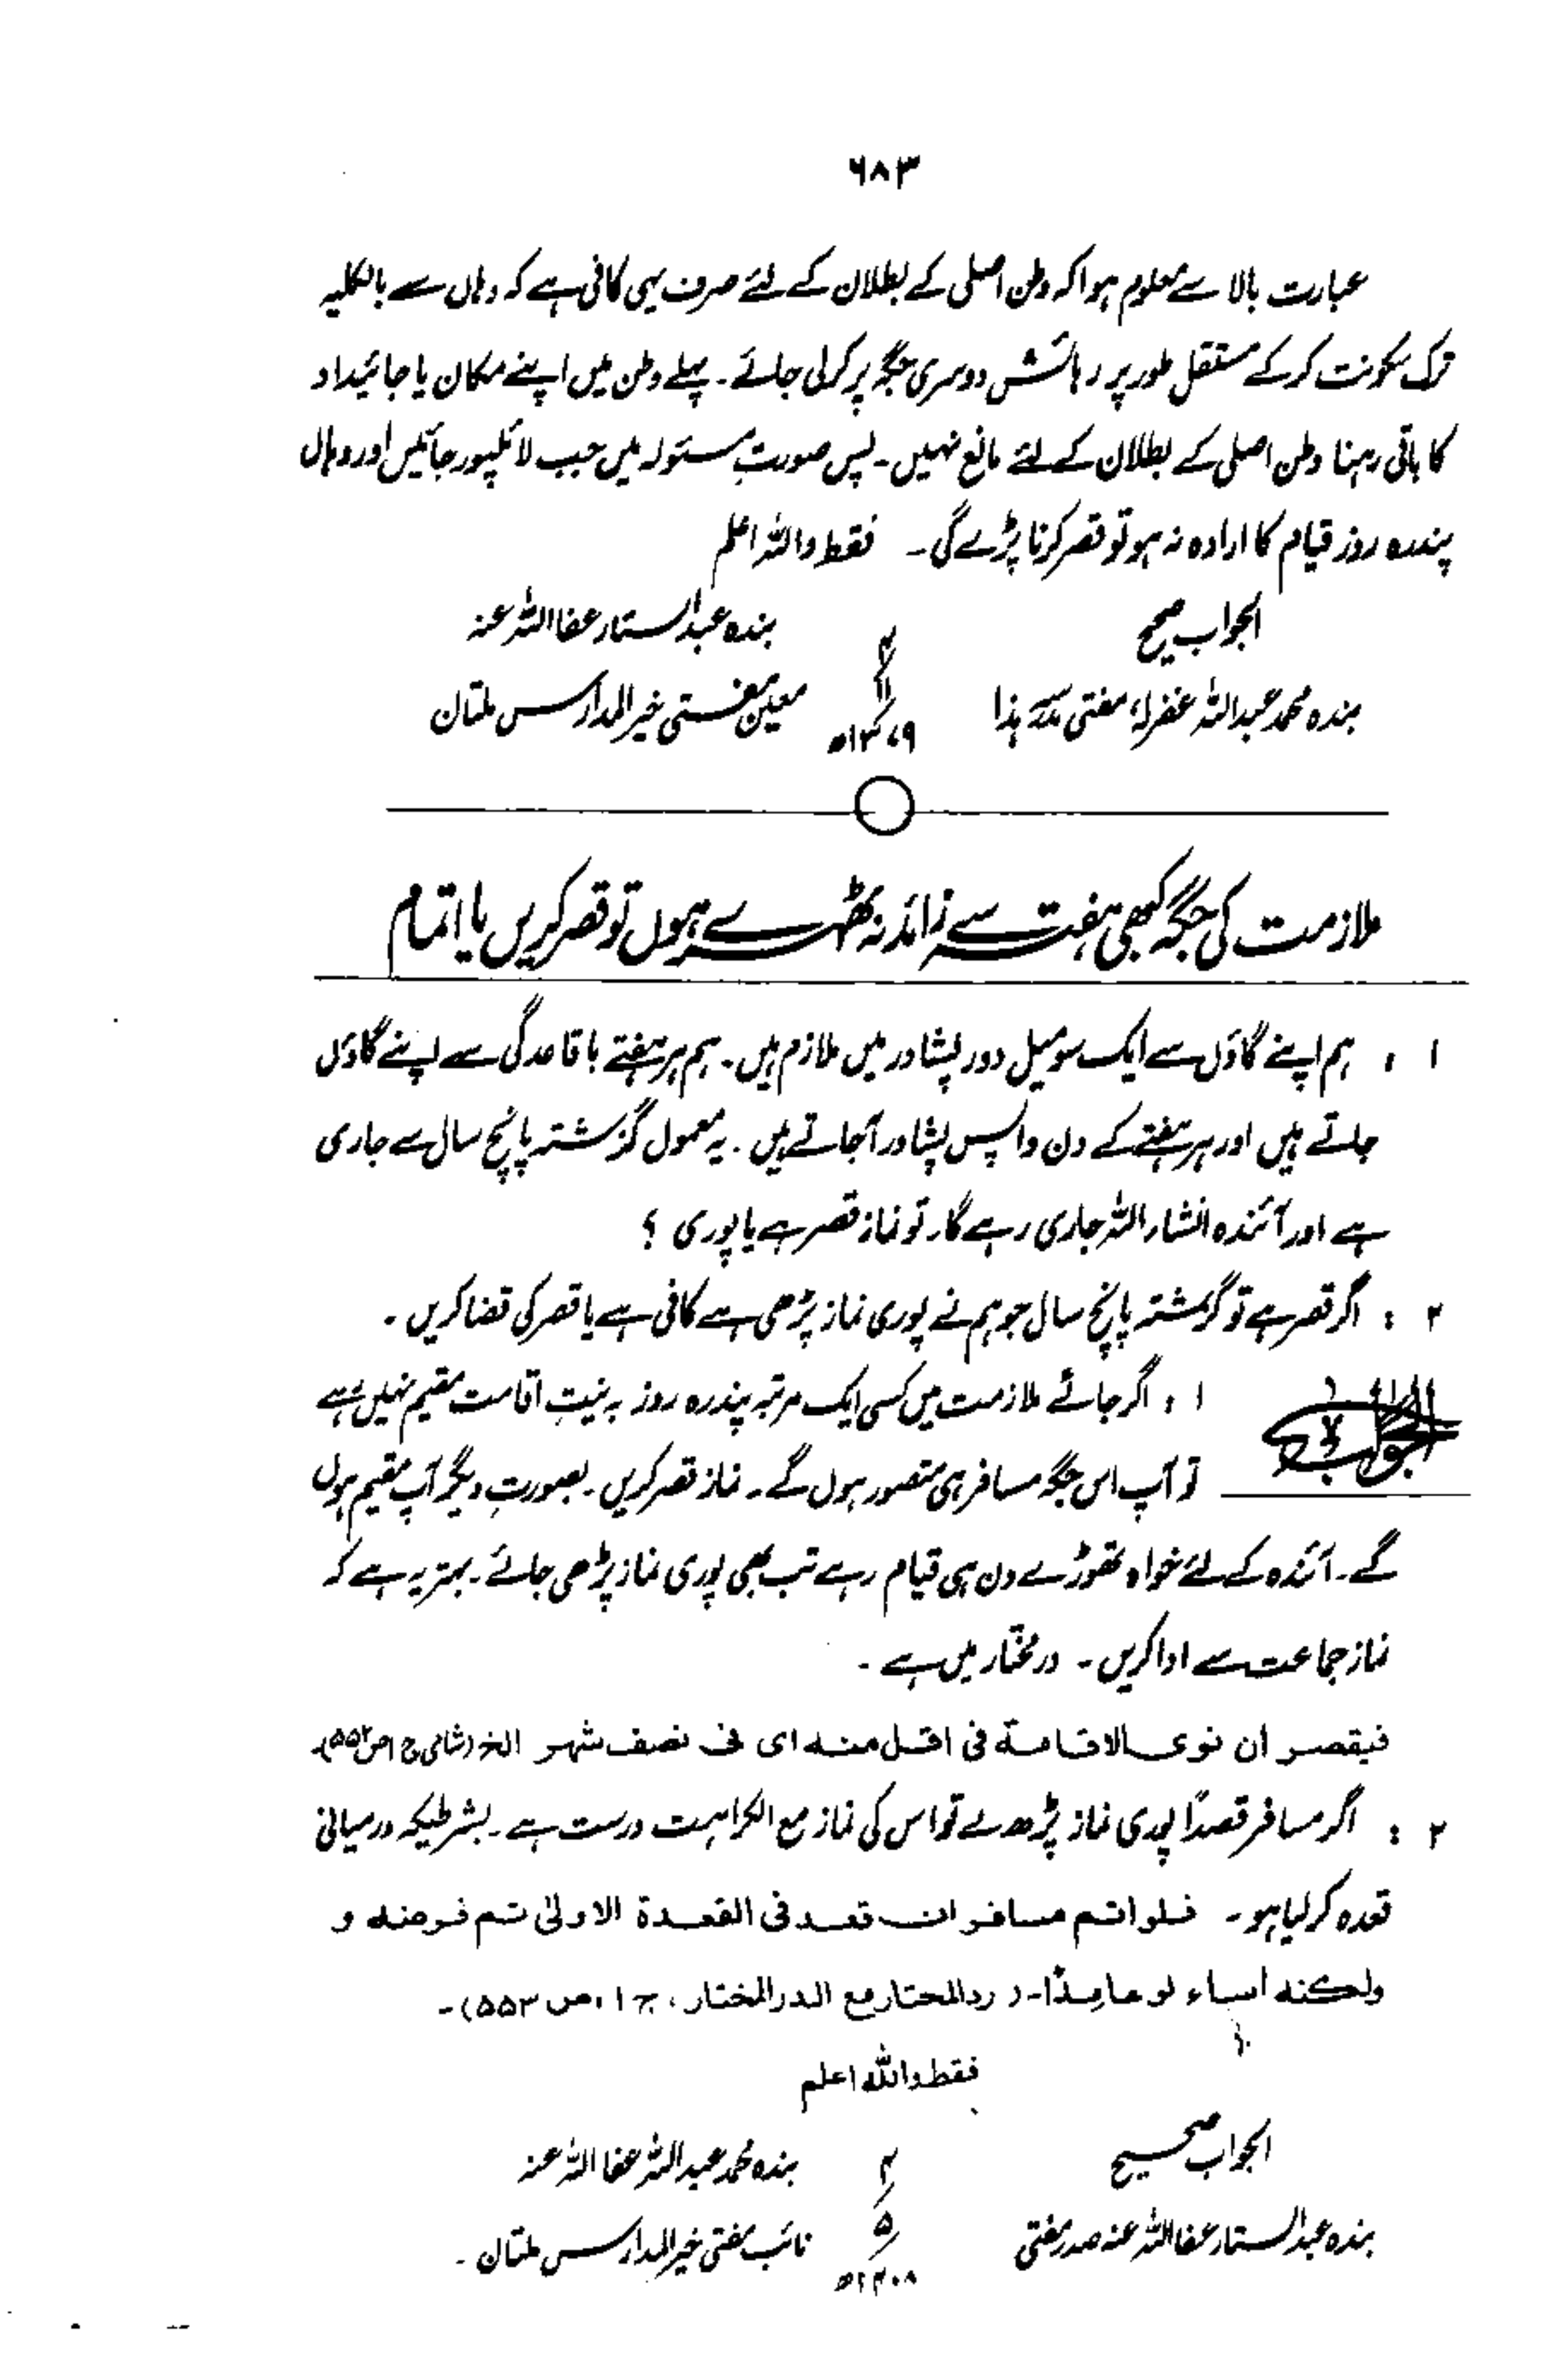 ۶۸۳
عبارت بالا سے معلوم ہوا کہ وطن اصلی کے بطلان کے لئے صرف یہی کافی ہے کہ وہاں سے بالکلیہ
ترک سکونت کر کے مستقل طور پر رہائش دوسری جگہ پر کرلی جائے۔ پہلے وطن میں اپنے مکان یا جائیداد
کا باقی رہنا وطن اصلی کے بطلان کے لئے مانع نہیں۔ پس صورتِ مسئولہ میں جب لائلپور جائیں اور وہاں
پندرہ روز قیام کا ارادہ نہ ہو تو قصر کرنا پڑے گی۔ فقط واللہ اعلم
الجواب صحیح
بندہ عبدالستار عفا اللہ عنہ
بندہ محمد عبداللہ غفرلہٗ مفتی مدرسہ ہذا
معین مفتی خیر المدارس ملتان
۴/۱۱/۱۳۷۹ھ
ملازمت کی جگہ کبھی ہفتہ سے زائد نہ ٹھہرے ہوں تو قصر کریں یا اتمام
۱ : ہم اپنے گاؤں سے ایک سو میل دور پشاور میں ملازم ہیں۔ ہم ہر ہفتے باقاعدگی سے اپنے گاؤں
جاتے ہیں اور ہر ہفتے کے دن واپس پشاور آجاتے ہیں۔ یہ معمول گزشتہ پانچ سال سے جاری
ہے اور آئندہ انشاء اللہ جاری رہے گا۔ تو نماز قصر ہے یا پوری ؟
۲ : اگر قصر ہے تو گزشتہ پانچ سال جو ہم نے پوری نماز پڑھی ہے کافی ہے یا قصر کی قضا کریں۔
الجواب
۱ : اگر جائے ملازمت میں کسی ایک مرتبہ پندرہ روز بہ نیتِ اقامت مقیم نہیں رہے
تو آپ اس جگہ مسافر ہی متصور ہوں گے۔ نماز قصر کریں۔ بصورتِ دیگر آپ مقیم ہوں
گے۔ آئندہ کے لئے خواہ تھوڑے دن ہی قیام رہے تب بھی پوری نماز پڑھی جائے۔ بہتر یہ ہے کہ
نماز جماعت سے ادا کریں۔ درمختار میں ہے۔
فیقصر ان نوی الاقامۃ فی اقل منہ ای فی نصف شہر الخ (شامی ج۱ ص۵۵۲)۔
۲ : اگر مسافر قصداً پوری نماز پڑھ لے تو اس کی نماز مع الکراہت درست ہے۔ بشرطیکہ درمیانی
قعدہ کر لیا ہو۔ فلو اتم مسافر ان قعد فی القعدۃ الاولیٰ تم فرضہ و
ولکنہ أساء لو عامدًا۔ (ردالمحتار مع الدرالمختار، ج۱، ص ۵۵۳)۔
فقط واللہ اعلم
الجواب صحیح
بندہ محمد عبداللہ عفا اللہ عنہ
بندہ عبدالستار عفا اللہ عنہ صدر مفتی
نائب مفتی خیر المدارس ملتان۔
۴/۵/۱۴۰۸ھ